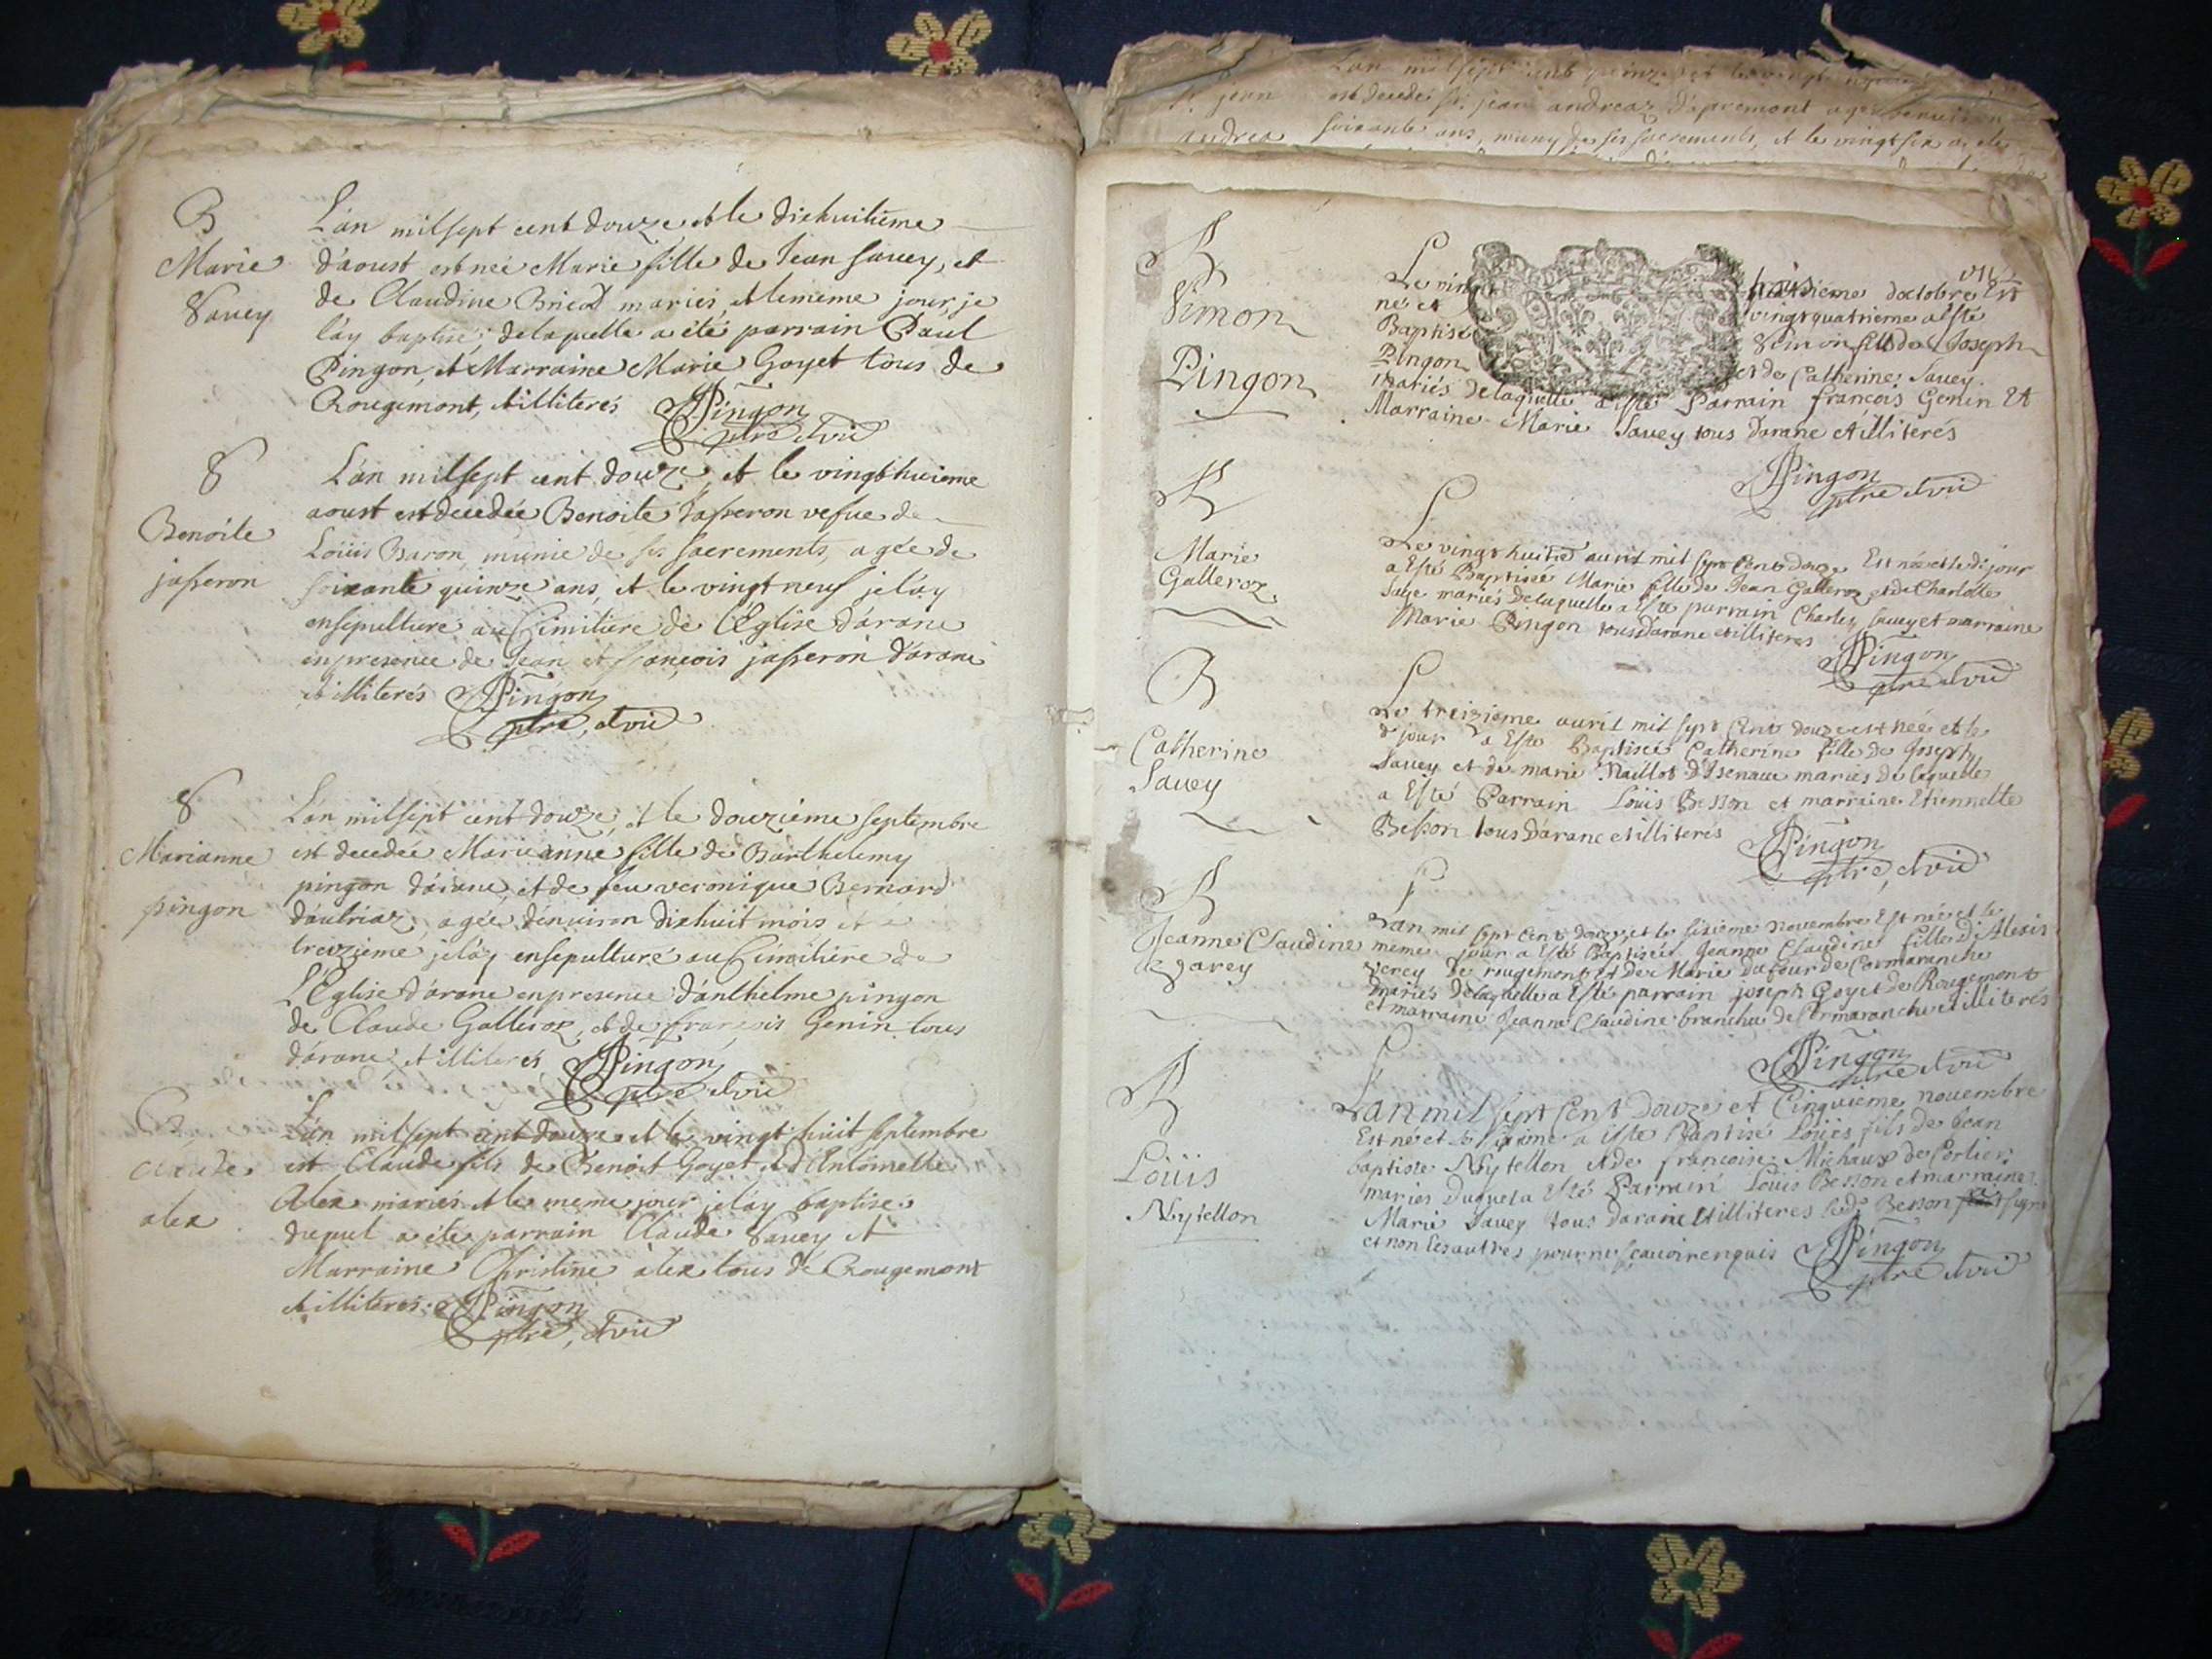 B
Marie
Savey
L'an milsept cent douze, et le dixhuitieme
d'aoust est née Marie fille de Jean Savey, et
de Claudine mariés, et le meme jour, je
l'ay baptisé; de laquelle a été parrain Paul
Pingon, et Marraine Marie Goyet tous de
Rougemont, et illiterés Pingon
ptre, et vic
S
Benoite
jasseron
L'an milsept cent douze, et le vingthuieme
aoust est decedée Benoite Jasseron vefue de
Loüis Baron munie de ses sacrements, agée de
soixante quinze ans, et le vingt neuf je l'ay
ensepulture au Cimitiere de l'Église d'arane
en presence de Jean et François jasseron d'arane
et illiterés Pingon
ptre, et vic
S
Marianne
pingon
L'an milsept cent douze, et le douzieme septembre
est decedée Marieanne fille de Barthelemy
pingon d'arane, et de feu veronique Bernard
d'aulriaz, agée d'enuiron dixhuit mois et
treizieme je l'ay ensepulturé au Cimitiere de
L'Eglise d'arane en presence d'anthelme pingon
de Claude Galleroz, et de françois Genin tous
d'arane, et illiterés Pingon
ptre et vic
Claude
alex
L'an milsept cent douze et le vingt huit septembre
est Claude fils de Benoit Goyet et d'Antoinette
Alex mariés et le meme jour je l'ay baptisé
duquel a été parrain Claude Savey et
Marraine Christine alex tous de Rougemont
et illiterés. Pingon
ptre, et vic
L'an milsept cent
Sr. jean est decedé Sr. jean andreaz d'apremont agé
andrea soixante ans, muny de ses sacrements, et le vingt six
B
Simon
Pingon
Le vingt troisieme doctobre Est
né et vingt quatrieme a esté
Baptisé Simon fils de Joseph
Pingon et de Catherine Savey
mariés de laquelle a esté Parrain françois Genin Et
Marraine Marie Savey tous darane et illiterés
Pingon
ptre et vic
B
Marie
Galleroz
Le vingt huitie auril mil sept Cent douze Est née et le dt jour
a Esté Baptisée Marie fille de Jean Galleroz et de Charlotte
mariés de laquelle a Esté parrain Charles Savey et marraine
Marie Pingon tous darane et illiteres Pingon
ptre et vic
B
Catherine
Savey
Le treizieme auril mil sept Cent douze est née et le
dt jour a Esté Baptisée Catherine fille de Joseph
Savey et de marie Maillot d'Isenaue mariés de laquelle
a Esté Parrain Loüis Besson et marraine Etiennette
Besson tous d'arane et illiterés Pingon
ptre, et vic
B
Jeanne Claudine
Lan mil sept Cent Douze, et le sixieme Novembre Est née et le
meme jour a Esté Baptisée Jeanne Claudine fille D'Alexis
de rougemont et de Marie dufour de Cormaranche
mariés de laquelle a Esté parrain joseph Goyet de Rougemont
et marraine Jeanne Claudine branche de Cormaranche et illiterés
Pingon
ptre et vic
B
Loüis
Nytellon
Lan mil sept Cent Douze et Cinquieme novembre
Est né et le sixieme a Esté Baptisé Loüis fils de Jean
baptiste Nytellon et de francoise Michaux de Corlier
mariés Duquel a Esté Parrain Louis Besson et marraine
Marie Savey tous darane et illiteres led. Besson signé
et non les autres pour ne scauoir enquis Pingon
ptre et vic